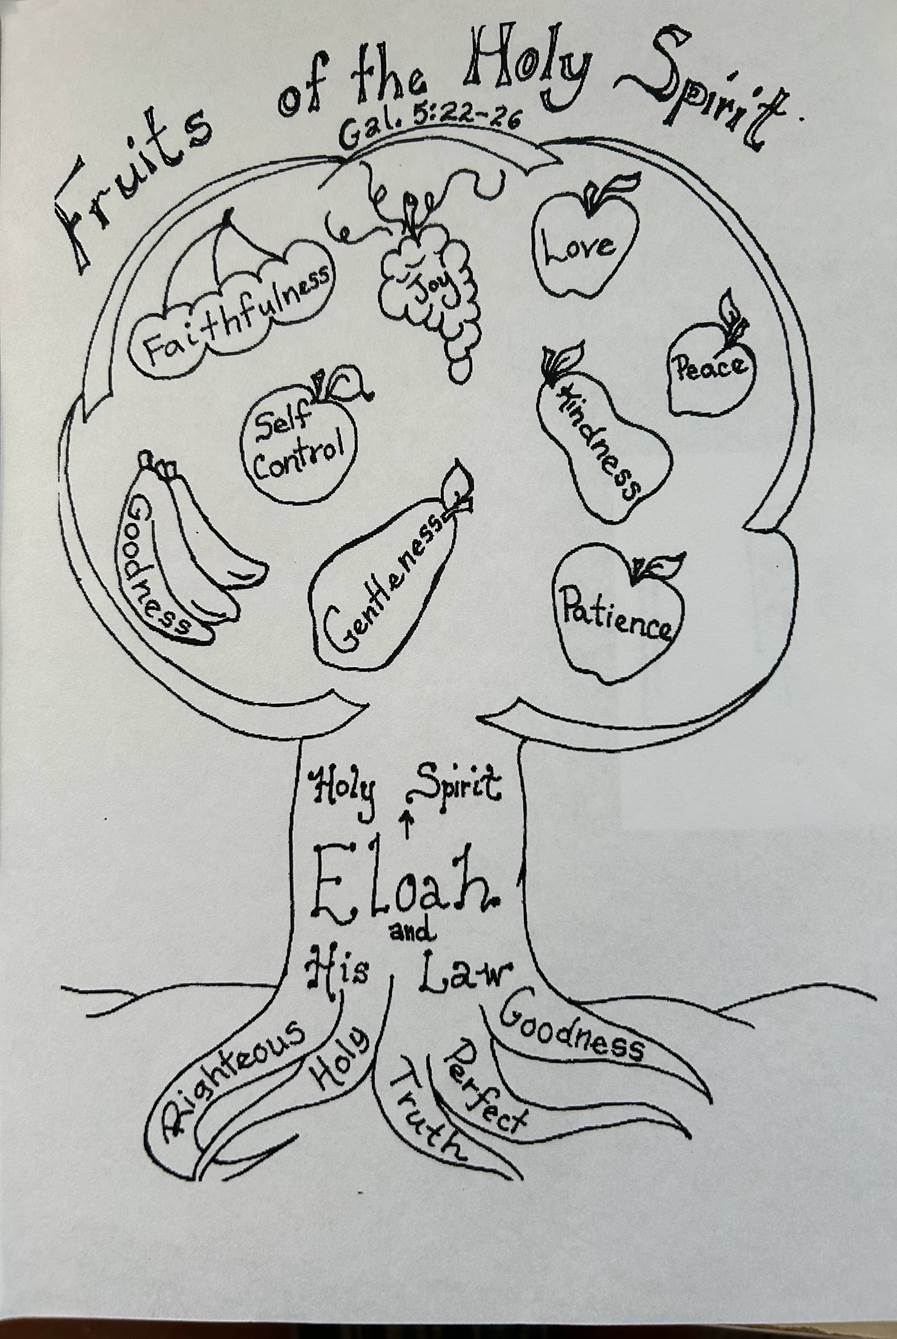 Fruits of the Holy Spirit
Gal. 5:22-26
Faithfulness
Joy
Love
Peace
Self
Control
Kindness
Goodness
Gentleness
Patience
Holy Spirit
Eloah
and
His Law
Righteous
Holy
Truth
Perfect
Goodness